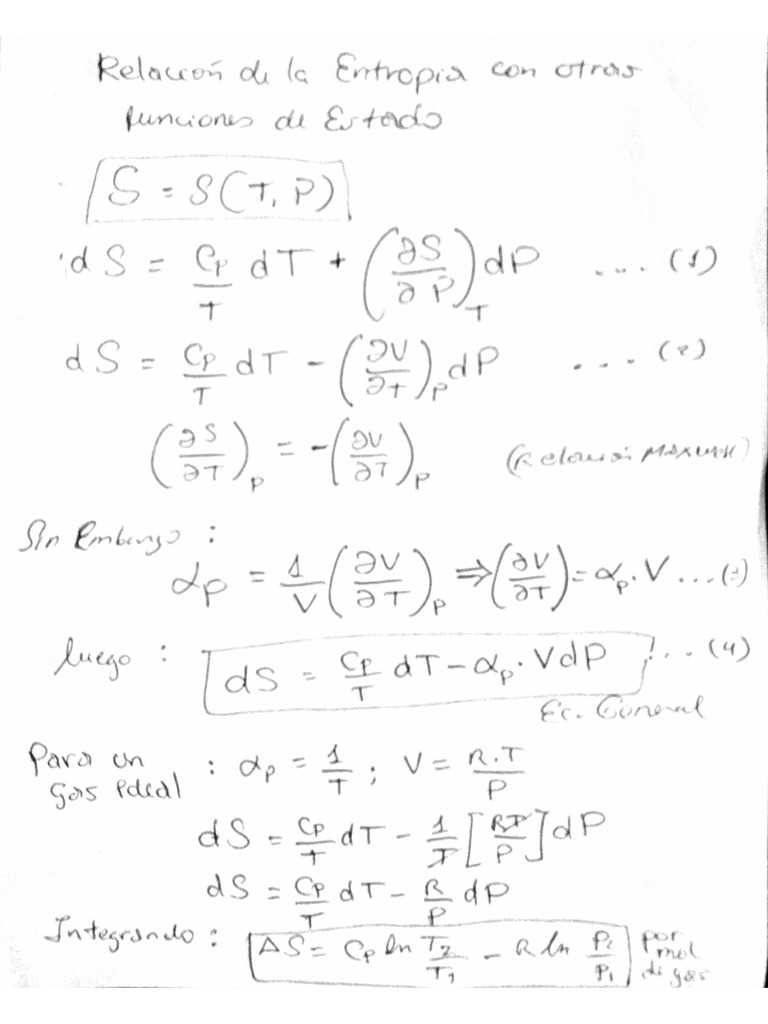 Relación de la Entropia con otras
funciones de Estado
S = S(T, P)
dS = Cp/T dT + (∂S/∂P)_T dP .... (1)
dS = Cp/T dT - (∂V/∂T)_P dP ... (2)
(∂S/∂T)_P = -(∂V/∂T)_P (Relación Maxwell)
Sin Embargo :
αp = 1/V (∂V/∂T)_P ⇒ (∂V/∂T) = αp · V ...(3)
luego : dS = Cp/T dT - αp · V dP ... (4)
Ec. General
Para un gas Ideal : αp = 1/T ; V = R.T/P
dS = Cp/T dT - 1/T [RT/P] dP
dS = Cp/T dT - R/P dP
Integrando : ΔS = Cp ln T2/T1 - R ln P2/P1 por mol de gas